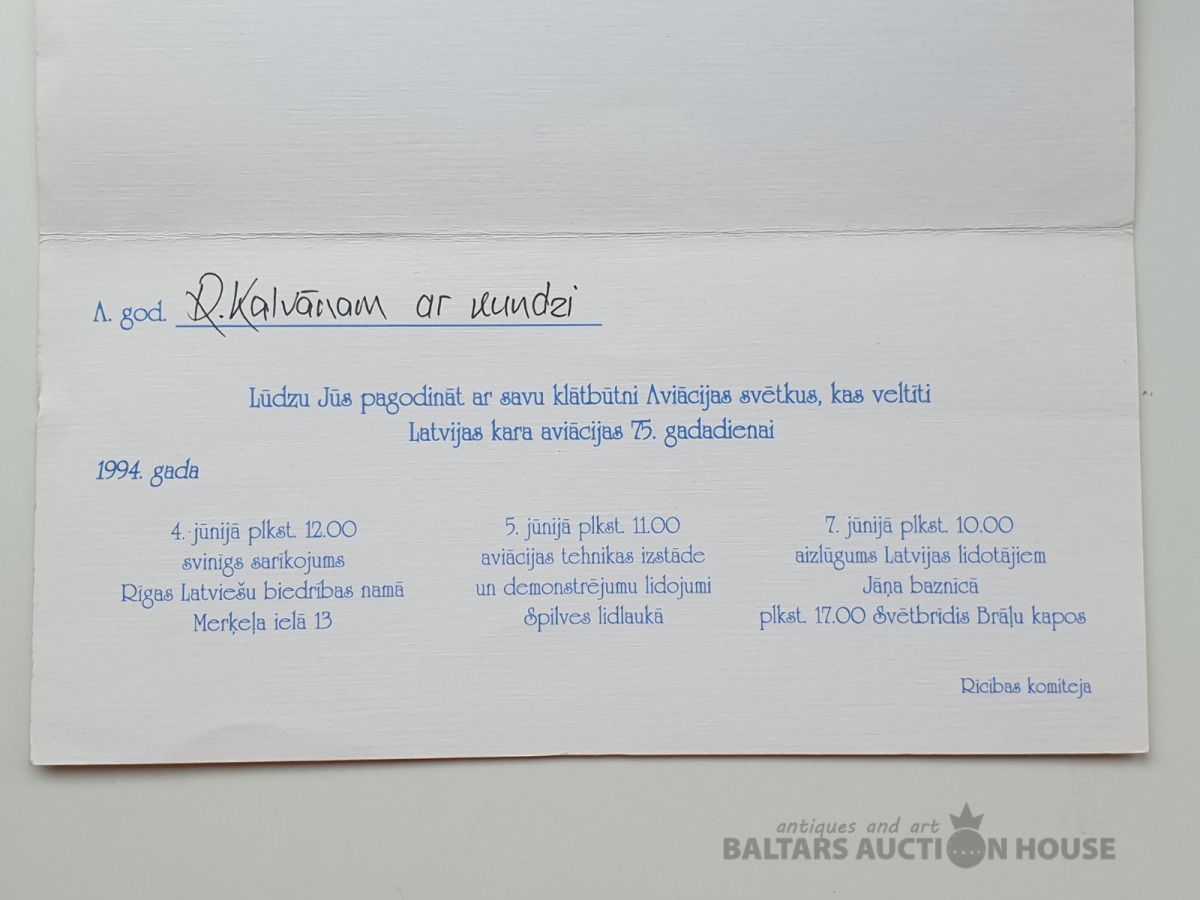 A. god. R. Kalvānam ar kundzi
Lūdzu Jūs pagodināt ar savu klātbūtni Aviācijas svētkus, kas veltīti
Latvijas kara aviācijas 75. gadadienai
1994. gada
4. jūnijā plkst. 12.00
svinīgs sarīkojums
Rīgas Latviešu biedrības namā
Merķeļa ielā 13
5. jūnijā plkst. 11.00
aviācijas tehnikas izstāde
un demonstrējumu lidojumi
Spilves lidlaukā
7. jūnijā plkst. 10.00
aizlūgums Latvijas lidotājiem
Jāņa baznīcā
plkst. 17.00 Svētbrīdis Brāļu kapos
Rīcības komiteja
antiques and art
BALTARS AUCTION HOUSE